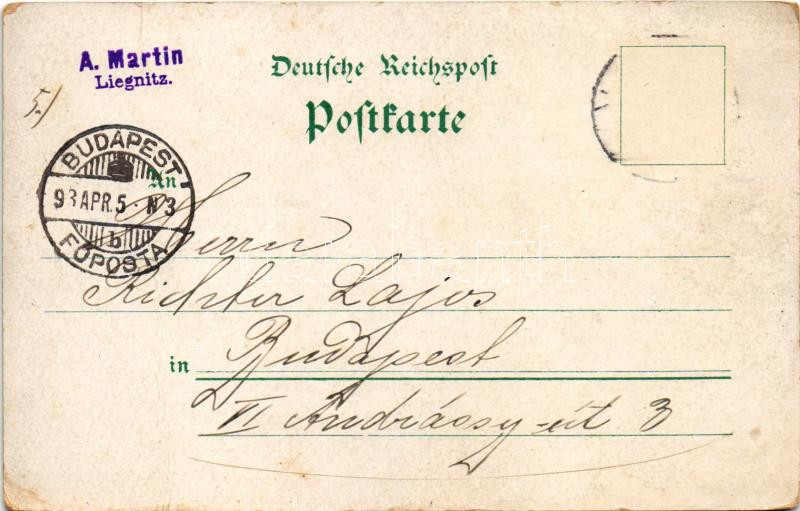 A. Martin
Liegnitz.
Deutsche Reichspost
Postkarte
5./
BUDAPEST
An
APR. 5 · N 3
b
FŐPOSTA
Herrn
Richter Lajos
in Budapest
VI Andrássy-út 3